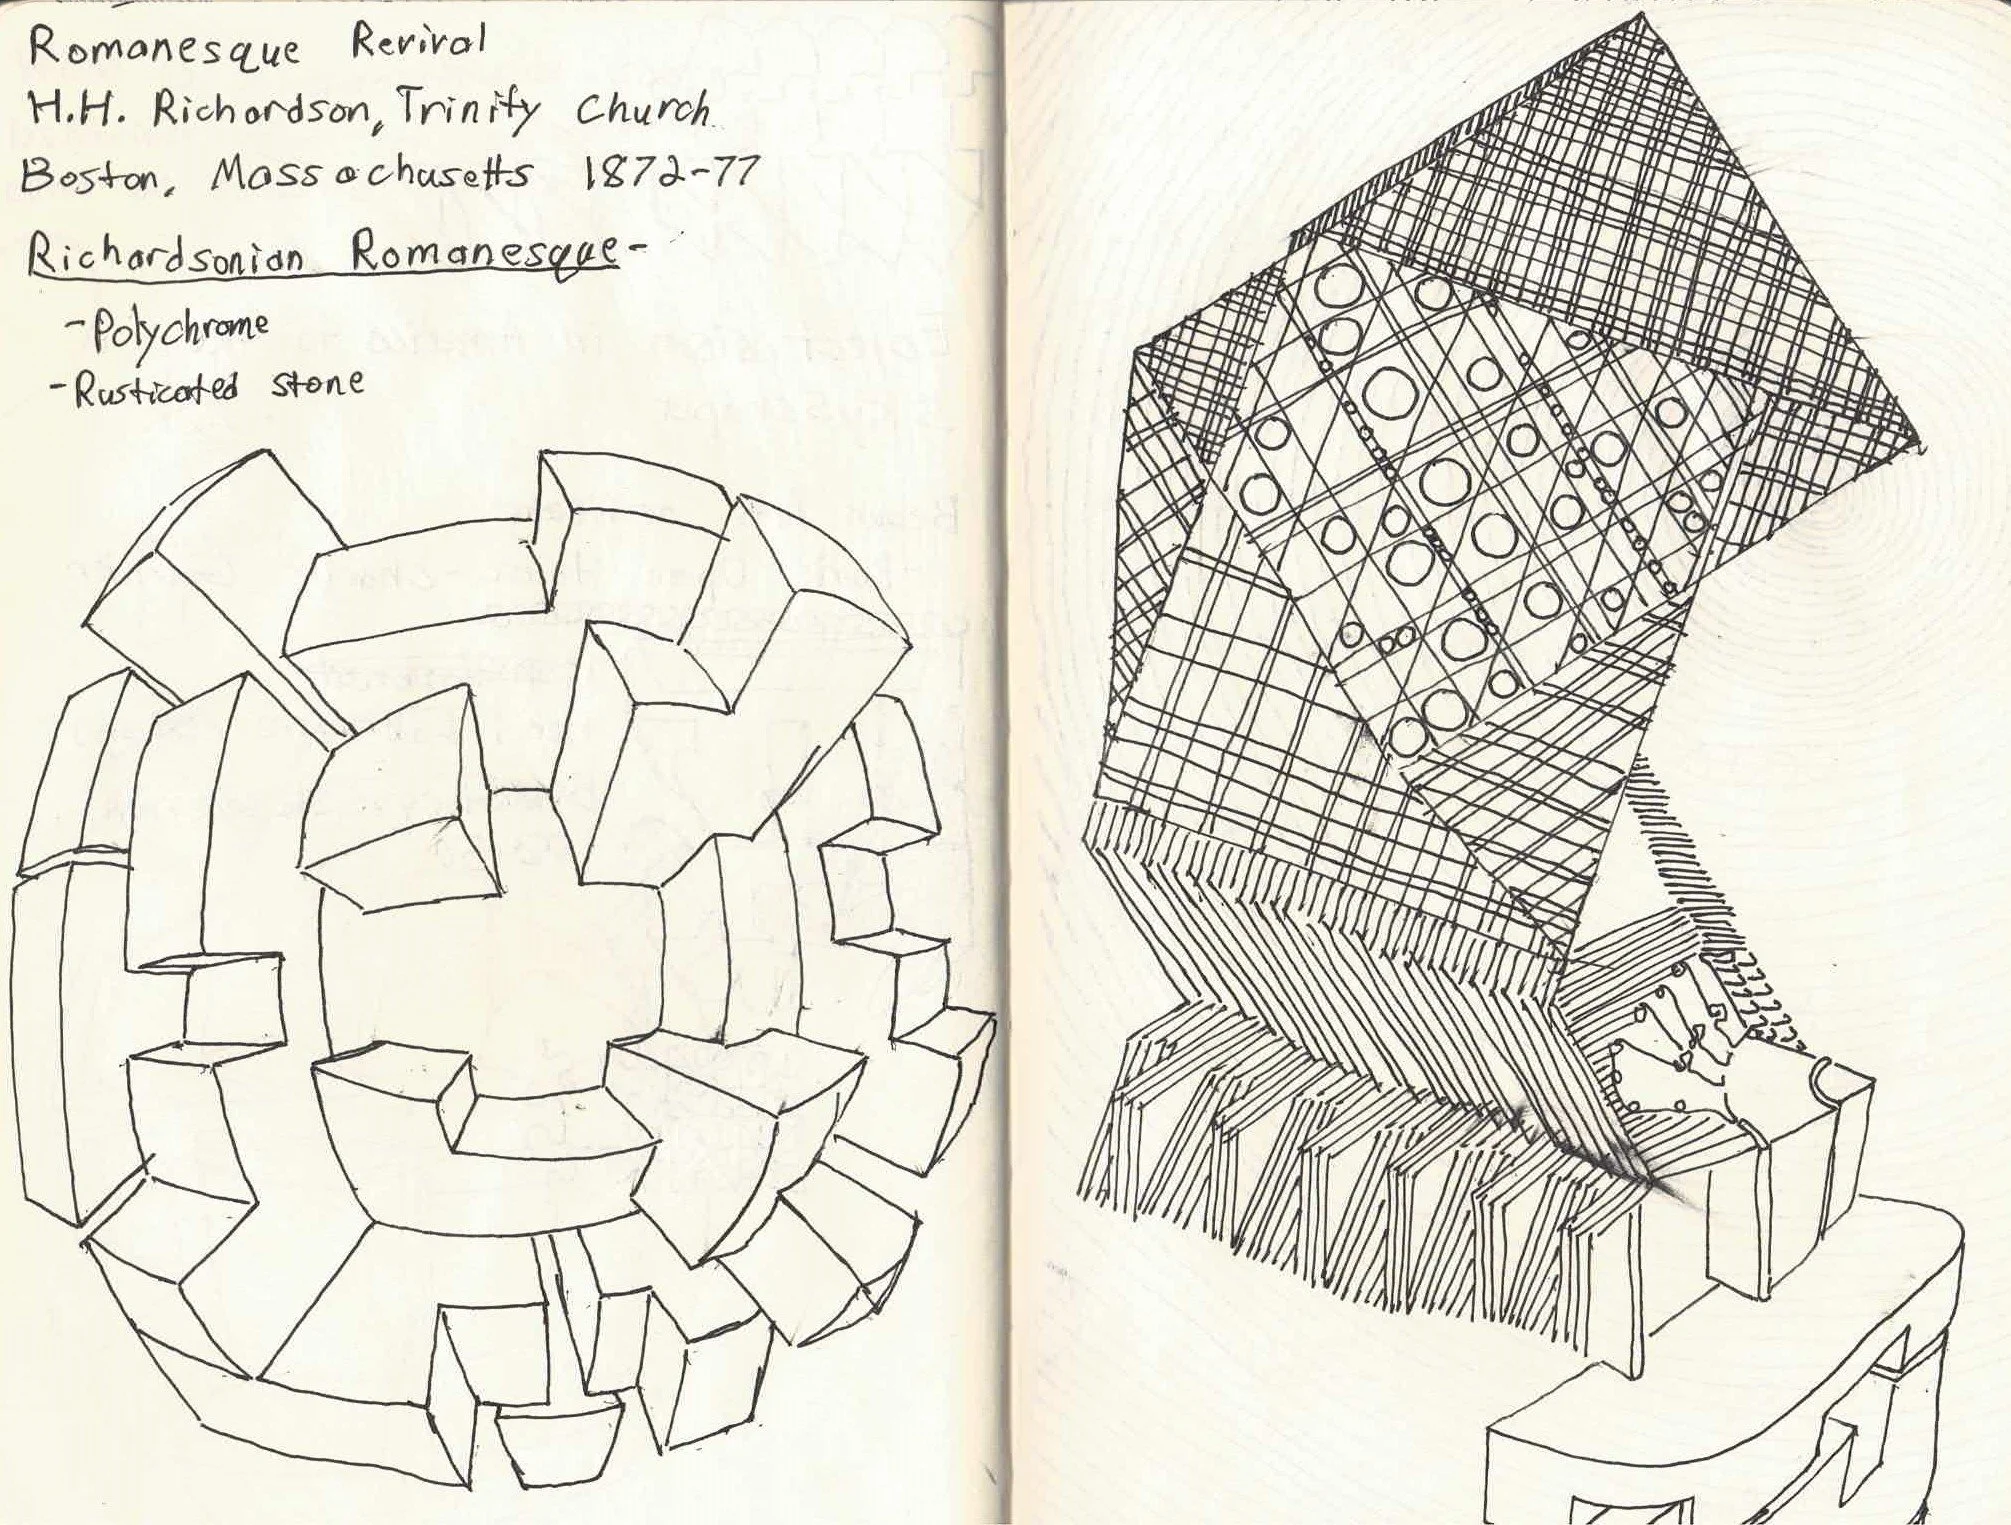 Romanesque Revival
H.H. Richardson, Trinity Church
Boston, Massachusetts 1872-77
Richardsonian Romanesque-
-Polychrome
-Rusticated stone